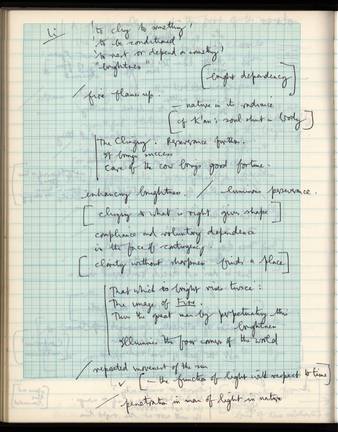 Li
'to cling to something'
'to be conditioned
'to rest or depend on something'
"brightness"
[bright dependency]
/ fire flames up.
— nature in its radiance
[cf K'an: soul shut in body]
The Clinging: Perseverance furthers.
It brings success
Care of the cow brings good fortune.
enhancing brightness. / luminous perseverance.
[clinging to what is right, gives shape]
compliance and voluntary dependence
in the face of contingency
[clarity without sharpness finds a place]
That which is bright rises twice:
The image of Fire.
Thus the great man by perpetuating this
brightness
Illumines the four corners of the world
/ repeated movement of the sun
[— the function of light with respect to time]
/ penetration in man of light in nature